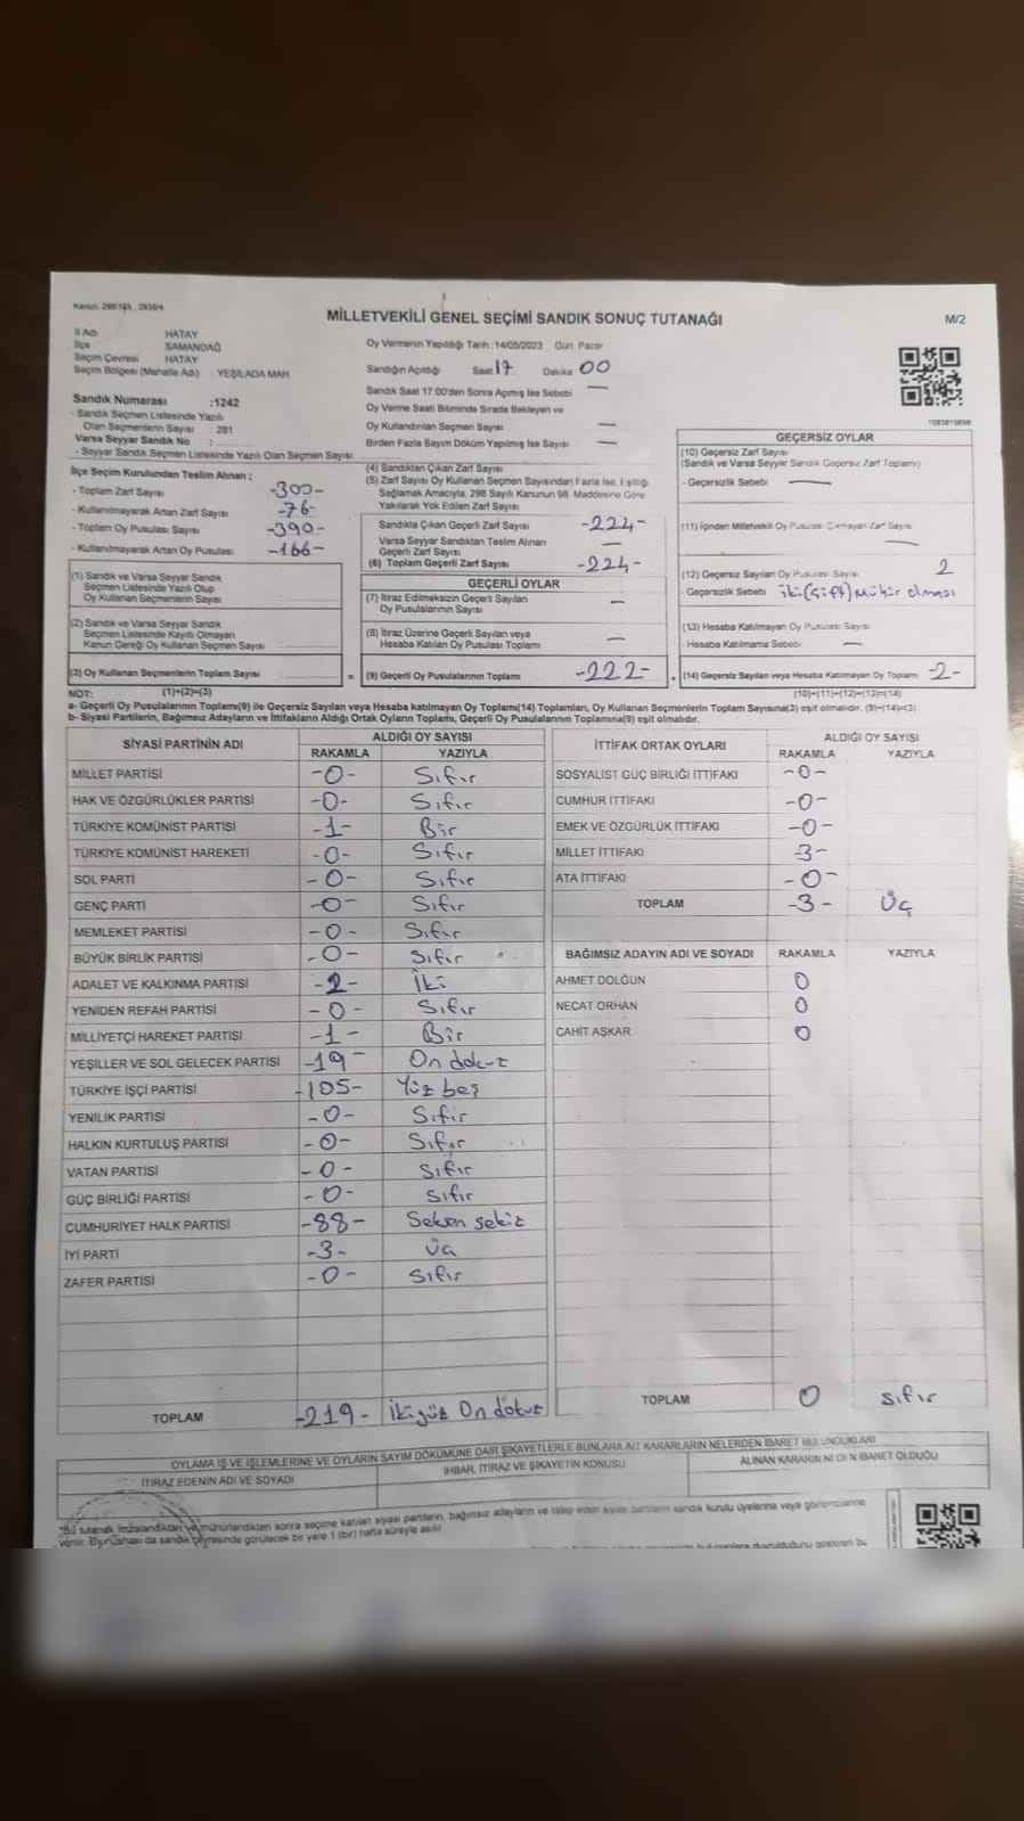 Kanun: 298/105, 2839/4
MİLLETVEKİLİ GENEL SEÇİMİ SANDIK SONUÇ TUTANAĞI
M/2
İl Adı HATAY
İlçe SAMANDAĞ
Seçim Çevresi HATAY
Seçim Bölgesi (Mahalle Adı) : YEŞİLADA MAH.
Sandık Numarası :1242
- Sandık Seçmen Listesinde Yazılı
Olan Seçmenlerin Sayısı : 281
Varsa Seyyar Sandık No :
- Seyyar Sandık Seçmen Listesinde Yazılı Olan Seçmen Sayısı
Oy Vermenin Yapıldığı Tarih :14/05/2023 Gün: Pazar
Sandığın Açıldığı Saat 17 Dakika 00
Sandık Saat 17.00'den Sonra Açılmış İse Sebebi —
Oy Verme Saati Bitiminde Sırada Bekleyen ve
Oy Kullandırılan Seçmen Sayısı —
Birden Fazla Sayım Döküm Yapılmış İse Sayısı —
İlçe Seçim Kurulundan Teslim Alınan ;
- Toplam Zarf Sayısı -300-
- Kullanılmayarak Artan Zarf Sayısı -76-
- Toplam Oy Pusulası Sayısı -390-
- Kullanılmayarak Artan Oy Pusulası -166-
(1) Sandık ve Varsa Seyyar Sandık
Seçmen Listesinde Yazılı Olup
Oy Kullanan Seçmenlerin Sayısı
(2) Sandık ve Varsa Seyyar Sandık
Seçmen Listesinde Kayıtlı Olmayan
Kanun Gereği Oy Kullanan Seçmen Sayısı
(3) Oy Kullanan Seçmenlerin Toplam Sayısı
(4) Sandıktan Çıkan Zarf Sayısı
(5) Zarf Sayısı Oy Kullanan Seçmen Sayısından Fazla İse, Eşitliği
Sağlamak Amacıyla, 298 Sayılı Kanunun 98. Maddesine Göre
Yakılarak Yok Edilen Zarf Sayısı
Sandıkta Çıkan Geçerli Zarf Sayısı -224-
Varsa Seyyar Sandıktan Teslim Alınan
Geçerli Zarf Sayısı —
(6) Toplam Geçerli Zarf Sayısı -224-
GEÇERLİ OYLAR
(7) İtiraz Edilmeksizin Geçerli Sayılan
Oy Pusulalarının Sayısı —
(8) İtiraz Üzerine Geçerli Sayılan veya
Hesaba Katılan Oy Pusulası Toplamı —
= (9) Geçerli Oy Pusulalarının Toplamı -222-
GEÇERSİZ OYLAR
(10) Geçersiz Zarf Sayısı
(Sandık ve Varsa Seyyar Sandık Geçersiz Zarf Toplamı)
- Geçersizlik Sebebi —
(11) İçinden Milletvekili Oy Pusulası Çıkmayan Zarf Sayısı —
(12) Geçersiz Sayılan Oy Pusulası Sayısı 2
Geçersizlik Sebebi iki (çift) Mühür olması
(13) Hesaba Katılmayan Oy Pusulası Sayısı
- Hesaba Katılmama Sebebi —
+ (14) Geçersiz Sayılan veya Hesaba Katılmayan Oy Toplamı -2-
NOT: (1)+(2)=(3) (10)+(11)+(12)+(13)=(14)
a- Geçerli Oy Pusulalarının Toplamı(9) ile Geçersiz Sayılan veya Hesaba katılmayan Oy Toplamı(14) Toplamları, Oy Kullanan Seçmenlerin Toplam Sayısına(3) eşit olmalıdır. (9)+(14)=(3)
b- Siyasi Partilerin, Bağımsız Adayların ve İttifakların Aldığı Ortak Oyların Toplamı, Geçerli Oy Pusulalarının Toplamına(9) eşit olmalıdır.
SİYASİ PARTİNİN ADI ALDIĞI OY SAYISI
RAKAMLA YAZIYLA
MİLLET PARTİSİ -0- Sıfır
HAK VE ÖZGÜRLÜKLER PARTİSİ -0- Sıfır
TÜRKİYE KOMÜNİST PARTİSİ -1- Bir
TÜRKİYE KOMÜNİST HAREKETİ -0- Sıfır
SOL PARTİ -0- Sıfır
GENÇ PARTİ -0- Sıfır
MEMLEKET PARTİSİ -0- Sıfır
BÜYÜK BİRLİK PARTİSİ -0- Sıfır
ADALET VE KALKINMA PARTİSİ -2- İki
YENİDEN REFAH PARTİSİ -0- Sıfır
MİLLİYETÇİ HAREKET PARTİSİ -1- Bir
YEŞİLLER VE SOL GELECEK PARTİSİ -19- On dokuz
TÜRKİYE İŞÇİ PARTİSİ -105- Yüz beş
YENİLİK PARTİSİ -0- Sıfır
HALKIN KURTULUŞ PARTİSİ -0- Sıfır
VATAN PARTİSİ -0- Sıfır
GÜÇ BİRLİĞİ PARTİSİ -0- Sıfır
CUMHURİYET HALK PARTİSİ -88- Seksen sekiz
İYİ PARTİ -3- Üç
ZAFER PARTİSİ -0- Sıfır
TOPLAM -219- İkiyüz On dokuz
İTTİFAK ORTAK OYLARI ALDIĞI OY SAYISI
RAKAMLA YAZIYLA
SOSYALİST GÜÇ BİRLİĞİ İTTİFAKI -0-
CUMHUR İTTİFAKI -0-
EMEK VE ÖZGÜRLÜK İTTİFAKI -0-
MİLLET İTTİFAKI -3-
ATA İTTİFAKI -0-
TOPLAM -3- Üç
BAĞIMSIZ ADAYIN ADI VE SOYADI RAKAMLA YAZIYLA
AHMET DOLĞUN 0
NECAT ORHAN 0
CAHİT AŞKAR 0
TOPLAM 0 sıfır
OYLAMA İŞ VE İŞLEMLERİNE VE OYLARIN SAYIM DÖKÜMÜNE DAİR ŞİKAYETLERLE BUNLARA AİT KARARLARIN NELERDEN İBARET BULUNDUKLARI
İTİRAZ EDENİN ADI VE SOYADI İHBAR, İTİRAZ VE ŞİKAYETİN KONUSU ALINAN KARARIN NEDEN İBARET OLDUĞU
*Bu tutanak imzalandıktan ve mühürlendikten sonra seçime katılan siyasi partilerin, bağımsız adayların ve talep eden siyasi partilerin sandık kurulu üyelerine veya gözlemcilerine
verilir. Bir nüshası da sandık çevresinde görülecek bir yere 1 (bir) hafta süreyle asılır.